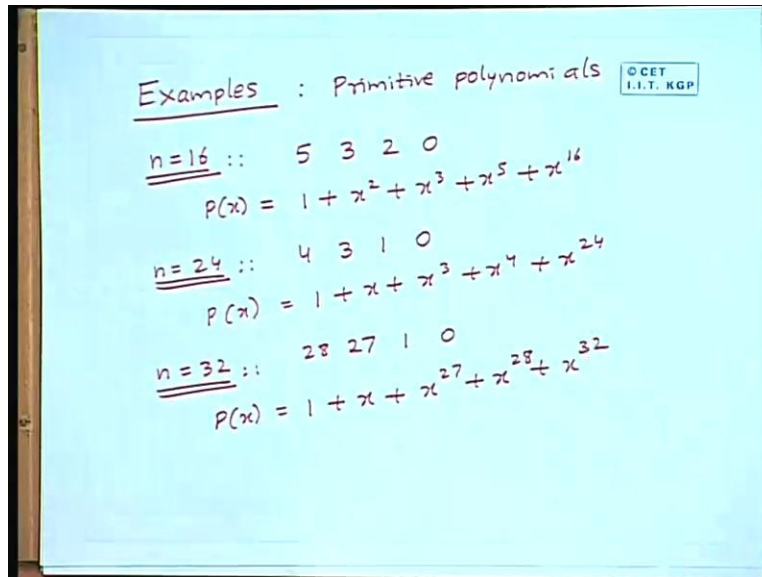 Examples : Primitive polynomials
© CET
I.I.T. KGP
n=16 :: 5 3 2 0
P(x) = 1 + x² + x³ + x⁵ + x¹⁶
n=24 :: 4 3 1 0
P(x) = 1 + x + x³ + x⁴ + x²⁴
n=32 :: 28 27 1 0
P(x) = 1 + x + x²⁷ + x²⁸ + x³²